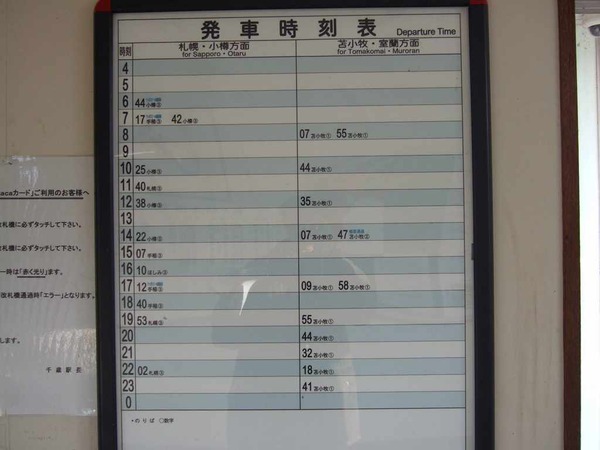 発車時刻表 Departure Time
時刻 札幌・小樽方面 苫小牧・室蘭方面
for Sapporo・Otaru for Tomakomai・Muroran
4
5
6 44 小樽②
7 17 手稲③ 42 小樽②
8 07 苫小牧① 55 苫小牧①
9
10 25 小樽③ 44 苫小牧①
11 40 札幌③
12 38 小樽③ 35 苫小牧①
13
14 22 小樽② 07 苫小牧① 47 苫小牧②
15 07 手稲③
16 10 ほしみ③
17 12 手稲③ 09 苫小牧① 58 苫小牧①
18 40 手稲③
19 53 札幌③ 55 苫小牧①
20 44 苫小牧①
21 32 苫小牧①
22 02 札幌③ 18 苫小牧①
23 41 苫小牧①
0
•のりば ○数字
acaカード」ご利用のお客様へ
札機に必ずタッチして下さい。
札機に必ずタッチして下さい。
一時は「赤く光り」ます。
改札機通過時「エラー」となります。
します。
千歳駅長